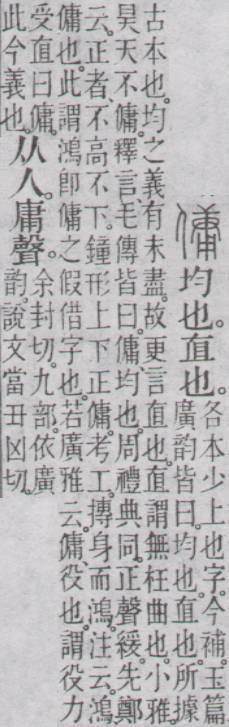 傭均也。直也。
各本少上也字。今補。玉篇
廣韵皆曰。均也。直也。所據
古本也。均之義有未盡。故更言直也。直謂無枉曲也。小雅。
昊天不傭。釋言毛傳皆曰。傭均也。周禮典同。正聲緩。先鄭
云。正者。不高不下。鐘形上下正傭。考工。摶身而鴻。注云。鴻
傭也。此謂鴻卽傭之假借字也。若廣雅云。傭。役也。謂役力
受直曰傭。
此今義也。
从人。庸聲。
余封切。九部。依廣
韵。說文當丑凶切。